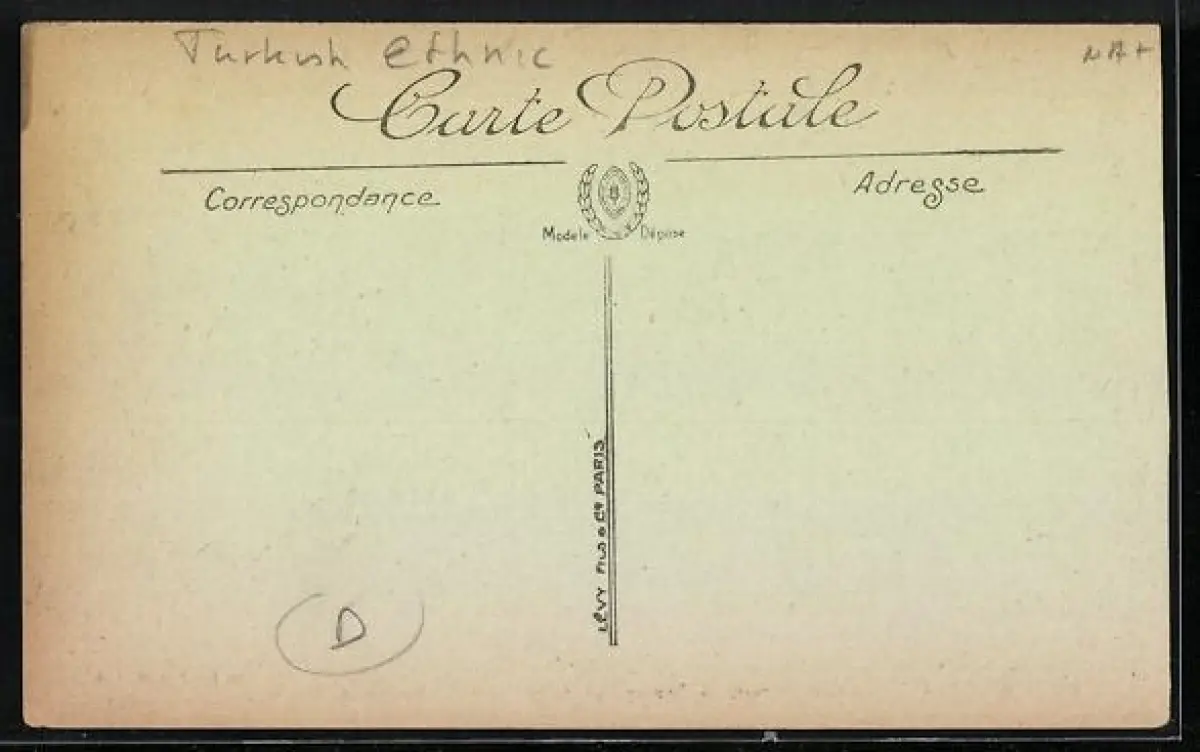 Turkish ethnic
Carte Postale
Correspondance
Adresse
Modèle Déposé
LÉVY FILS & Cie PARIS
D